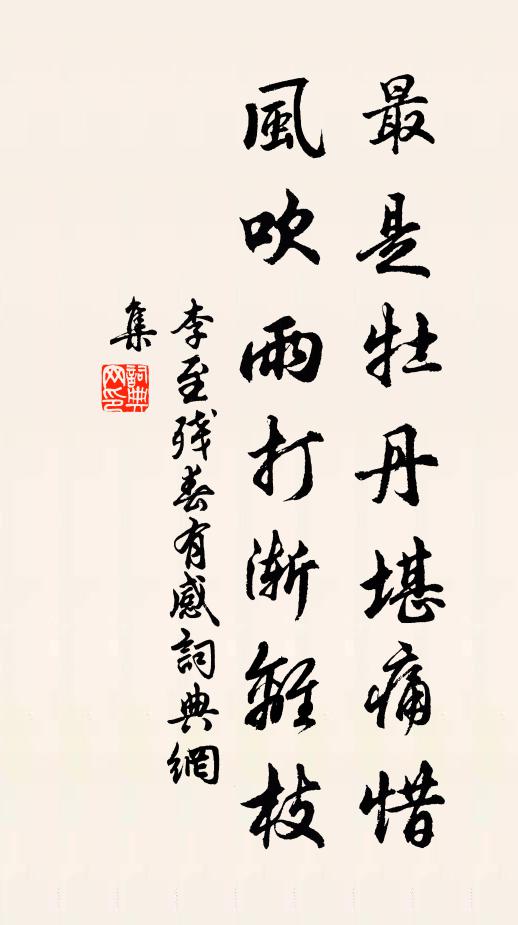 最是牡丹堪痛惜
風吹雨打漸離枝
李至殘春有感詞典網
集
詞典
网印